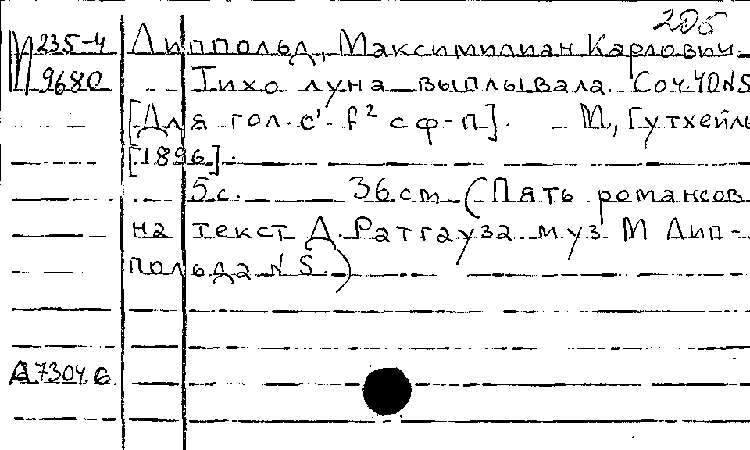 205
М 235-4 Липпольд, Максимилиан Карлович.
9680 Тихо луна выплывала. Соч. 40 N5
[Для гол. c¹-f² с ф-п]. - М., Гутхейль
[1896].
5 с. 36 cm (Пять романсов
на текст Д. Ратгауза муз М Лип-
польда N 5)
A 7304 6